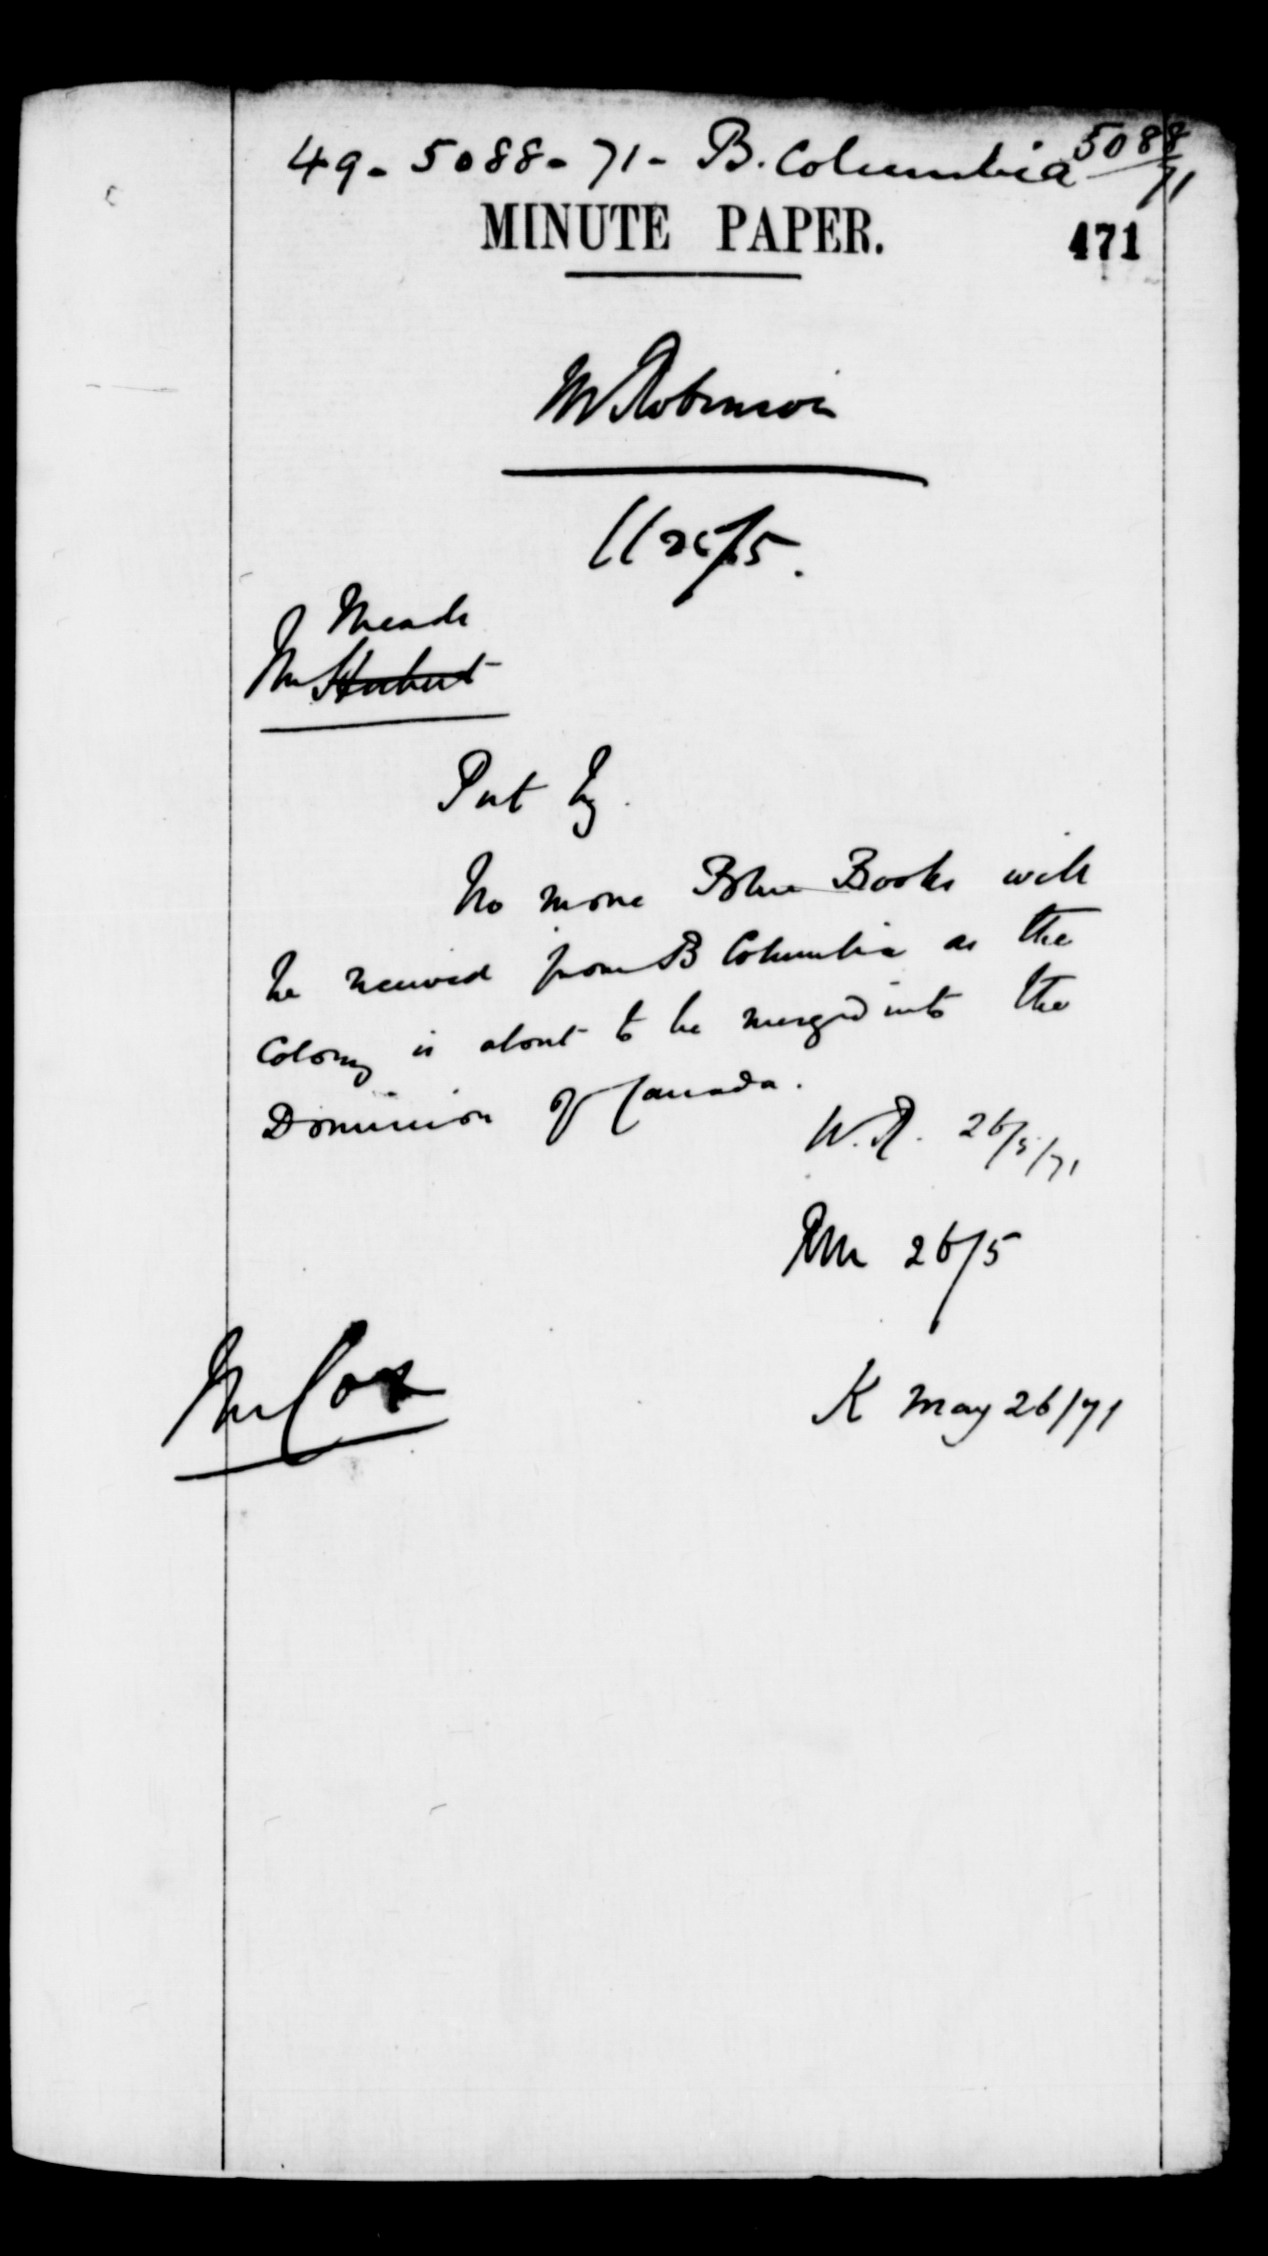 49 - 5088 - 71 - B. Columbia 5088/71
MINUTE PAPER.
471
Mr Robinson
CC 26/5.
Meade
Mr Herbert
Put by.
No more Blue Books will
be received from B Columbia as the
Colony is about to be merged into the
Dominion of Canada.
W.R. 26/5/71
RM 26/5
K May 26/71
Mr Cox